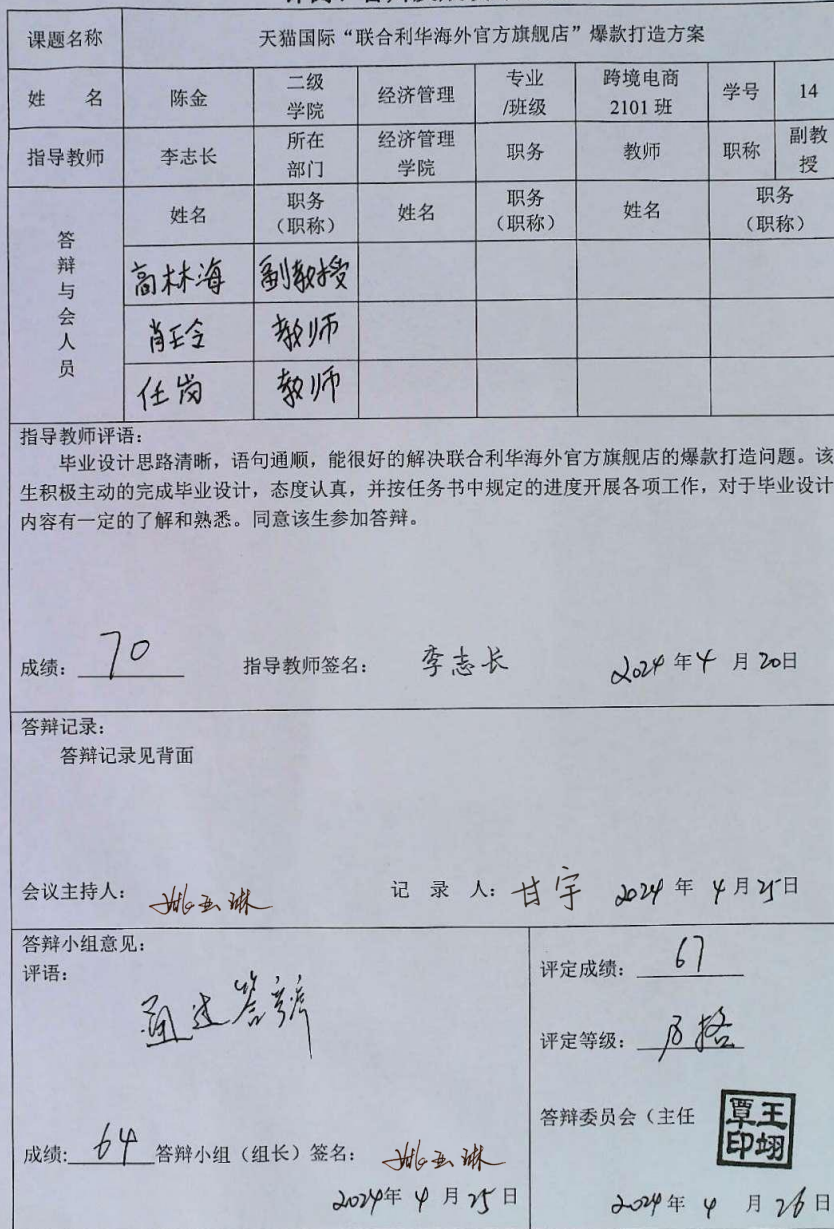 课题名称 天猫国际“联合利华海外官方旗舰店”爆款打造方案
姓 名 陈金 二级学院 经济管理 专业/班级 跨境电商2101班 学号 14
指导教师 李志长 所在部门 经济管理学院 职务 教师 职称 副教授
答辩与会人员 姓名 职务（职称） 姓名 职务（职称） 姓名 职务（职称）
高林海 副教授
肖玉令 教师
任岗 教师
指导教师评语：
毕业设计思路清晰，语句通顺，能很好的解决联合利华海外官方旗舰店的爆款打造问题。该
生积极主动的完成毕业设计，态度认真，并按任务书中规定的进度开展各项工作，对于毕业设计
内容有一定的了解和熟悉。同意该生参加答辩。
成绩： 70 指导教师签名： 李志长 2024年4月20日
答辩记录：
答辩记录见背面
会议主持人： 姚玉琳 记 录 人： 甘宇 2024年4月25日
答辩小组意见：
评语：
通过答辩
成绩: 64 答辩小组（组长）签名： 姚玉琳
2024年4月25日
评定成绩： 67
评定等级： 及格
答辩委员会（主任
王翊覃印
2024年4月26日